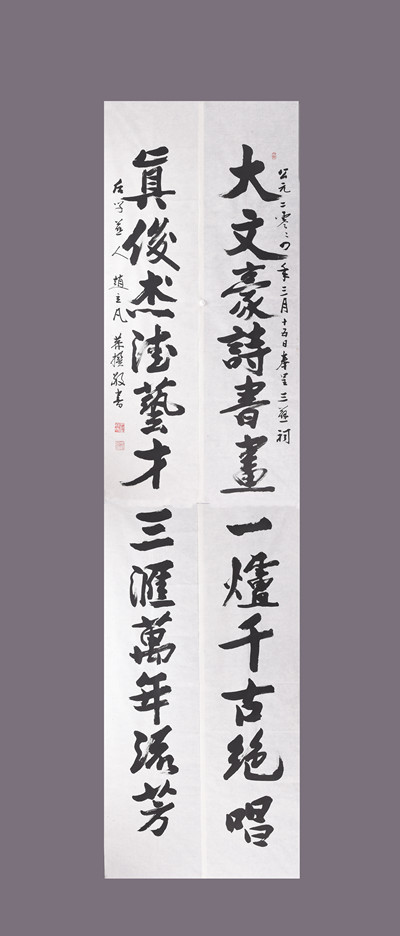 公元二零二四年三月十五日奉呈三蘇祠
大文豪詩書畫一爐千古絶唱
眞俊杰德藝才三滙萬年流芳
后学人 趙立凡 恭撰敬书